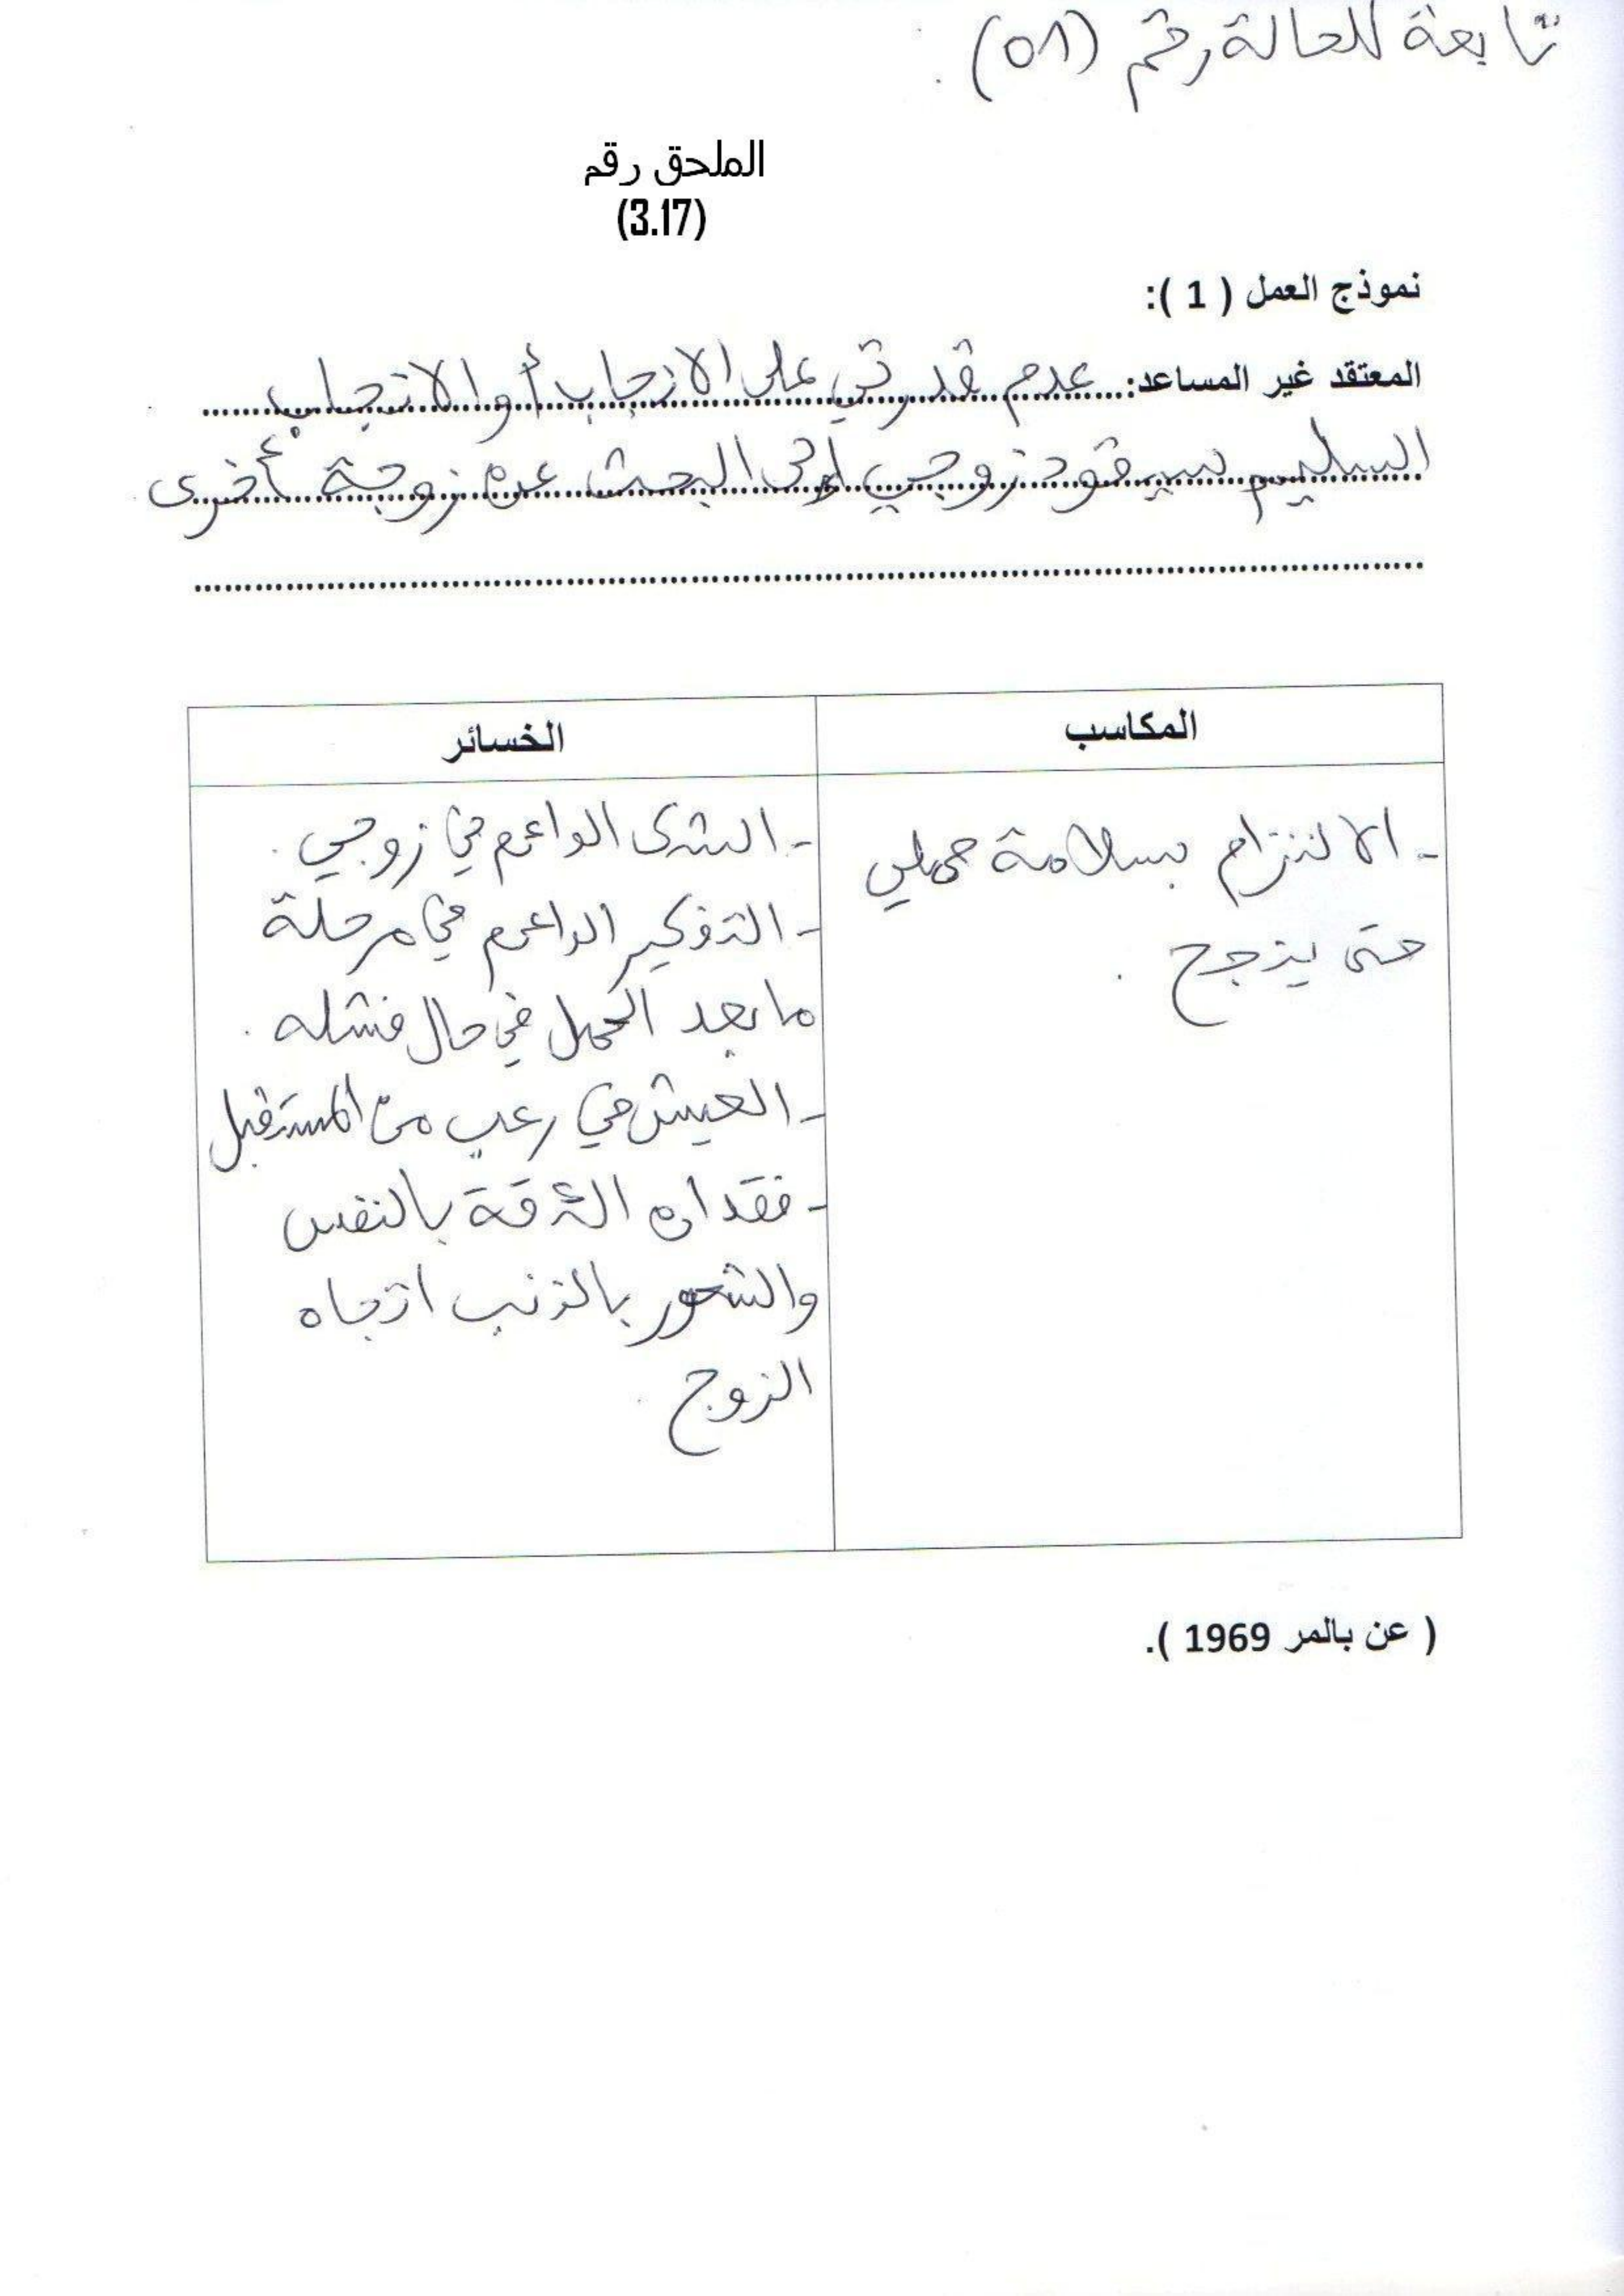 تابعة للحالة رقم (01).
الملحق رقم
(3.17)
نموذج العمل ( 1 ):
المعتقد غير المساعد: عدم قدرتي على الانجاب أو الانجاب
السليم سيقود زوجي إلى البحث عن زوجة أخرى
المكاسب
الخسائر
- الالتزام بسلامة حملي
حتى ينجح .
- الشك الدائم في زوجي .
- التفكير الدائم في مرحلة
ما بعد الحمل في حال فشله .
- العيش في رعب من المستقبل
- فقدان الثقة بالنفس
والشعور بالذنب اتجاه
الزوج .
( عن بالمر 1969 ).